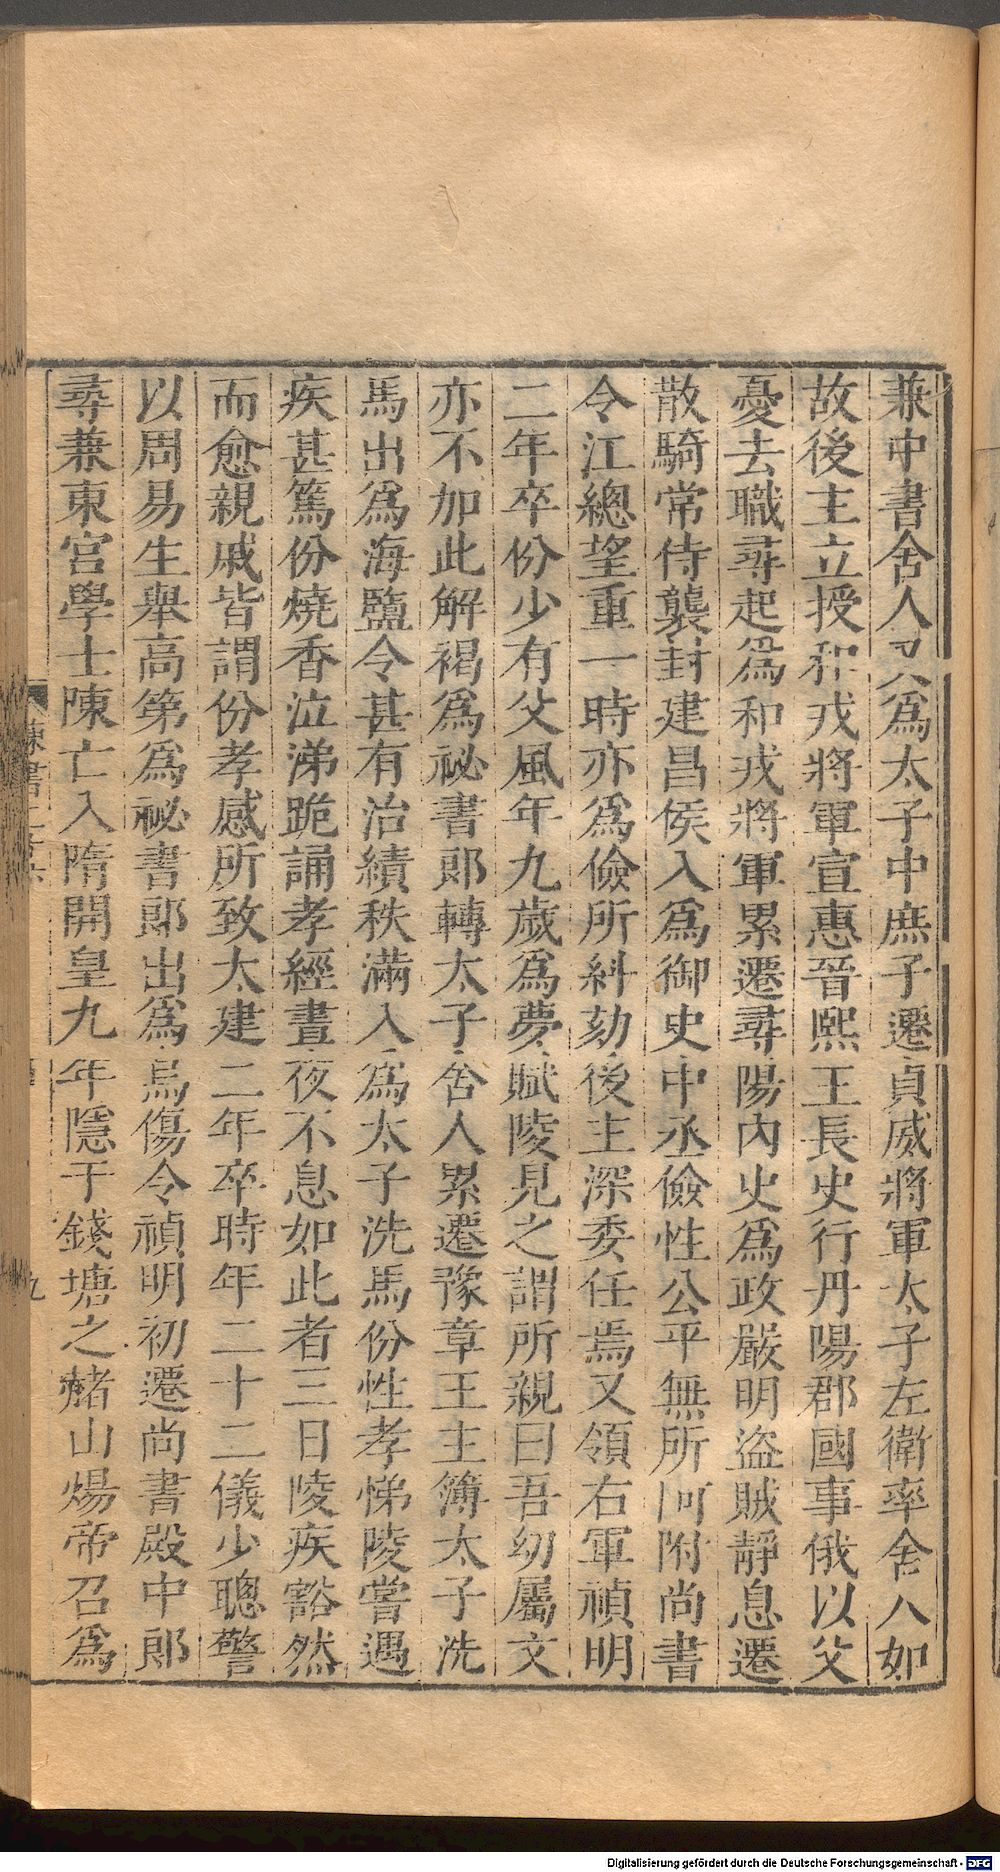 兼中書舍人又爲太子中庶子遷貞威將軍太子左衛率舍人如
故後主立授和戎將軍宣惠晉熙王長史行丹陽郡國事俄以父
憂去職尋起爲和戎將軍累遷尋陽內史爲政嚴明盜賊靜息遷
散騎常侍襲封建昌侯入爲御史中丞儉性公平無所阿附尚書
令江總望重一時亦爲儉所糾劾後主深委任焉又領右軍禎明
二年卒份少有父風年九歲爲夢賦陵見之謂所親曰吾幼屬文
亦不加此解褐爲祕書郎轉太子舍人累遷豫章王主簿太子洗
馬出爲海鹽令甚有治績秩滿入爲太子洗馬份性孝悌陵嘗遇
疾甚篤份燒香泣涕跪誦孝經晝夜不息如此者三日陵疾豁然
而愈親戚皆謂份孝感所致太建二年卒時年二十二儀少聰警
以周易生舉高第爲祕書郎出爲烏傷令禎明初遷尚書殿中郎
尋兼東宮學士陳亡入隋開皇九年隱于錢塘之赭山煬帝召爲
九
Digitalisierung gefördert durch die Deutsche Forschungsgemeinschaft - DFG